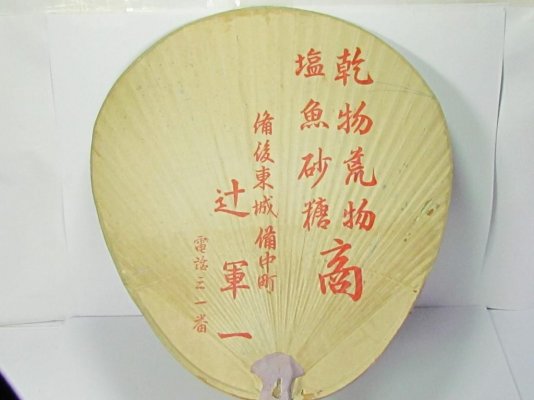 乾物荒物
塩魚砂糖
商
備後東城備中町
辻軍一
電話三一番